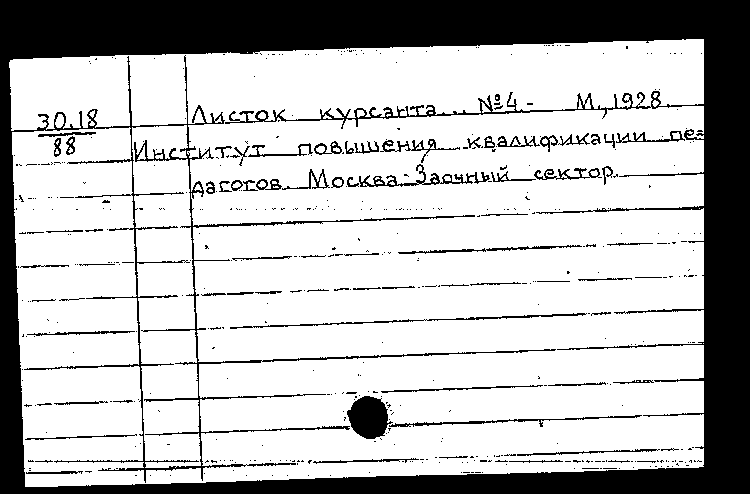 30.18 Листок курсанта... №4 - М., 1928.
88 Институт повышения квалификации пе-
дагогов. Москва. Заочный сектор.